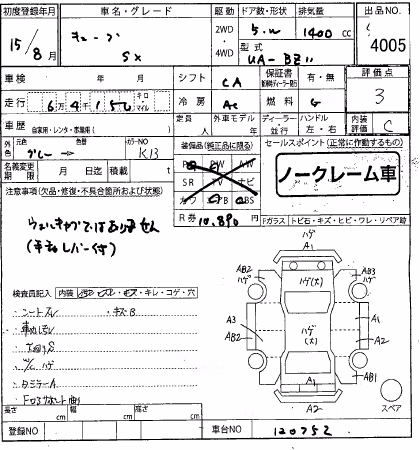 初度登録年月 車名・グレード 駆動 ドア数・形状 排気量 出品NO
15/8月 キューブ SX 2WD・4WD 5.W 1400cc 4005
型式 UA-BZ11
車検 年 月 シフト CA 保証書 有・無 評価点 3
走行 64150 キロ・マイル 冷房 AC 燃料 G
車歴 自家用・レンタ・事業用( ) 定員 人 外車モデル 年 ディーラー・並行 ハンドル 左・右 内装評価 C
外色 元色 グレー 色替 カラーNO K13 装備品(純正品に限る) セールスポイント(正常に作動するもの)
AW
名義変更期限 月 日 積載 t SR TV ナビ ノークレーム車
注意事項(欠品・修復・不具合箇所および状態) カワ ABS
R券 10,890 Fガラス トビ石・キズ・ヒビ・ワレ・リペア跡
ウェルキャブではありません
(手動レバー付)
ハゲ
A1
AB2 ハゲ AB3 ハゲ
ハゲ(大)
検査員記入 内装 ・キレ・コゲ・穴
シートスレ ・キズB
A3 A1
AB2 ハゲ(大) A2
車内よごれ
下回りS
ハゲ
AB2 AB1
A1
A2 スペア
長さ cm 幅 cm 高さ cm
登録NO 車台NO 120752